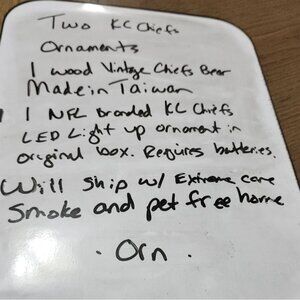 Two KC Chiefs
Ornaments
1 wood Vintage Chiefs Bear
Made in Taiwan
1 NFL Branded KC Chiefs
LED Light up ornament in
original box. Requires batteries.
Will Ship w/ Extreme care
Smoke and pet free home
· Orn .